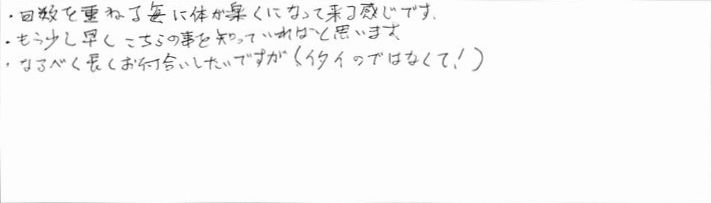 ・回数を重ねる毎に体が楽くになって来る感じです.
・もう少し早くこちらの事を知っていればと思います.
・なるべく長くお付合いしたいですが(イタイのではなくて!)